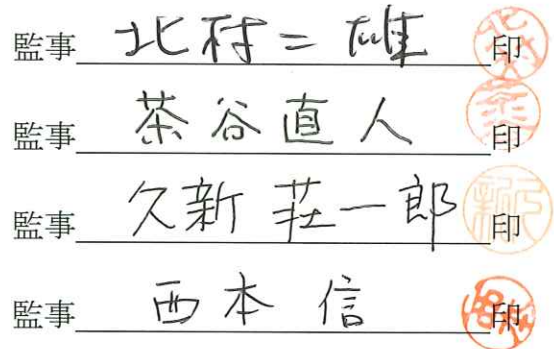 監事 北村二雄 印
監事 茶谷直人 印
監事 久新荘一郎 印
監事 西本 信 印